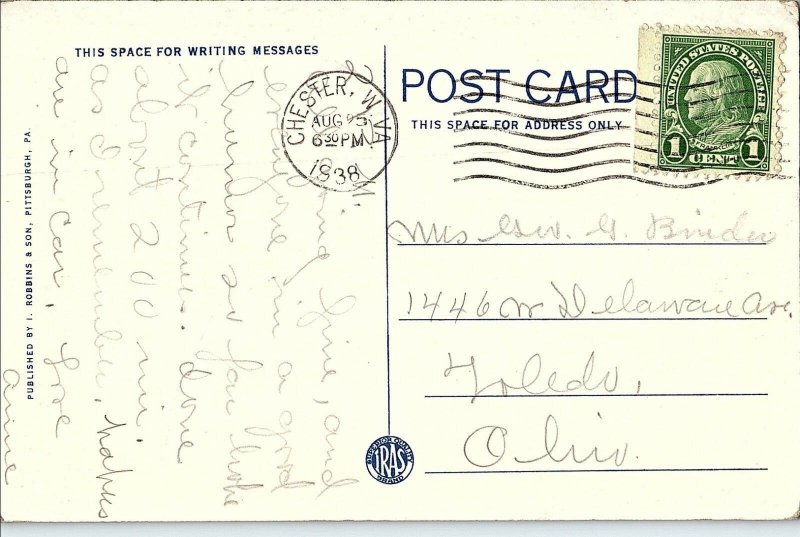 THIS SPACE FOR WRITING MESSAGES
POST CARD
THIS SPACE FOR ADDRESS ONLY
CHESTER, W. VA
AUG
6 30 PM
1938
UNITED STATES POSTAGE
FRANKLIN
1 CENT 1
Mrs Geo. G. Binder
1446 W Delaware Ave.
Toledo,
Ohio.
M.
going fine, and
everyone in a good
humor so far hope
it continues. done
about 200 mi.
as I remember,
are in car, Love
Anne
PUBLISHED BY I. ROBBINS & SON, PITTSBURGH, PA.
SUPERIOR QUALITY
IRAS
BRAND